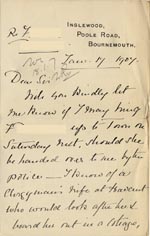 R. F.
INGLEWOOD,
POOLE ROAD,
BOURNEMOUTH.
Jan. 17 1907.
Dear Sir
Will you kindly let
me know if I may
F to Town on
Saturday next, should she
be handed over to me by the
police — I know of a
Clergyman's wife at Parkent
who would look after her &
board her out in a Cottage,